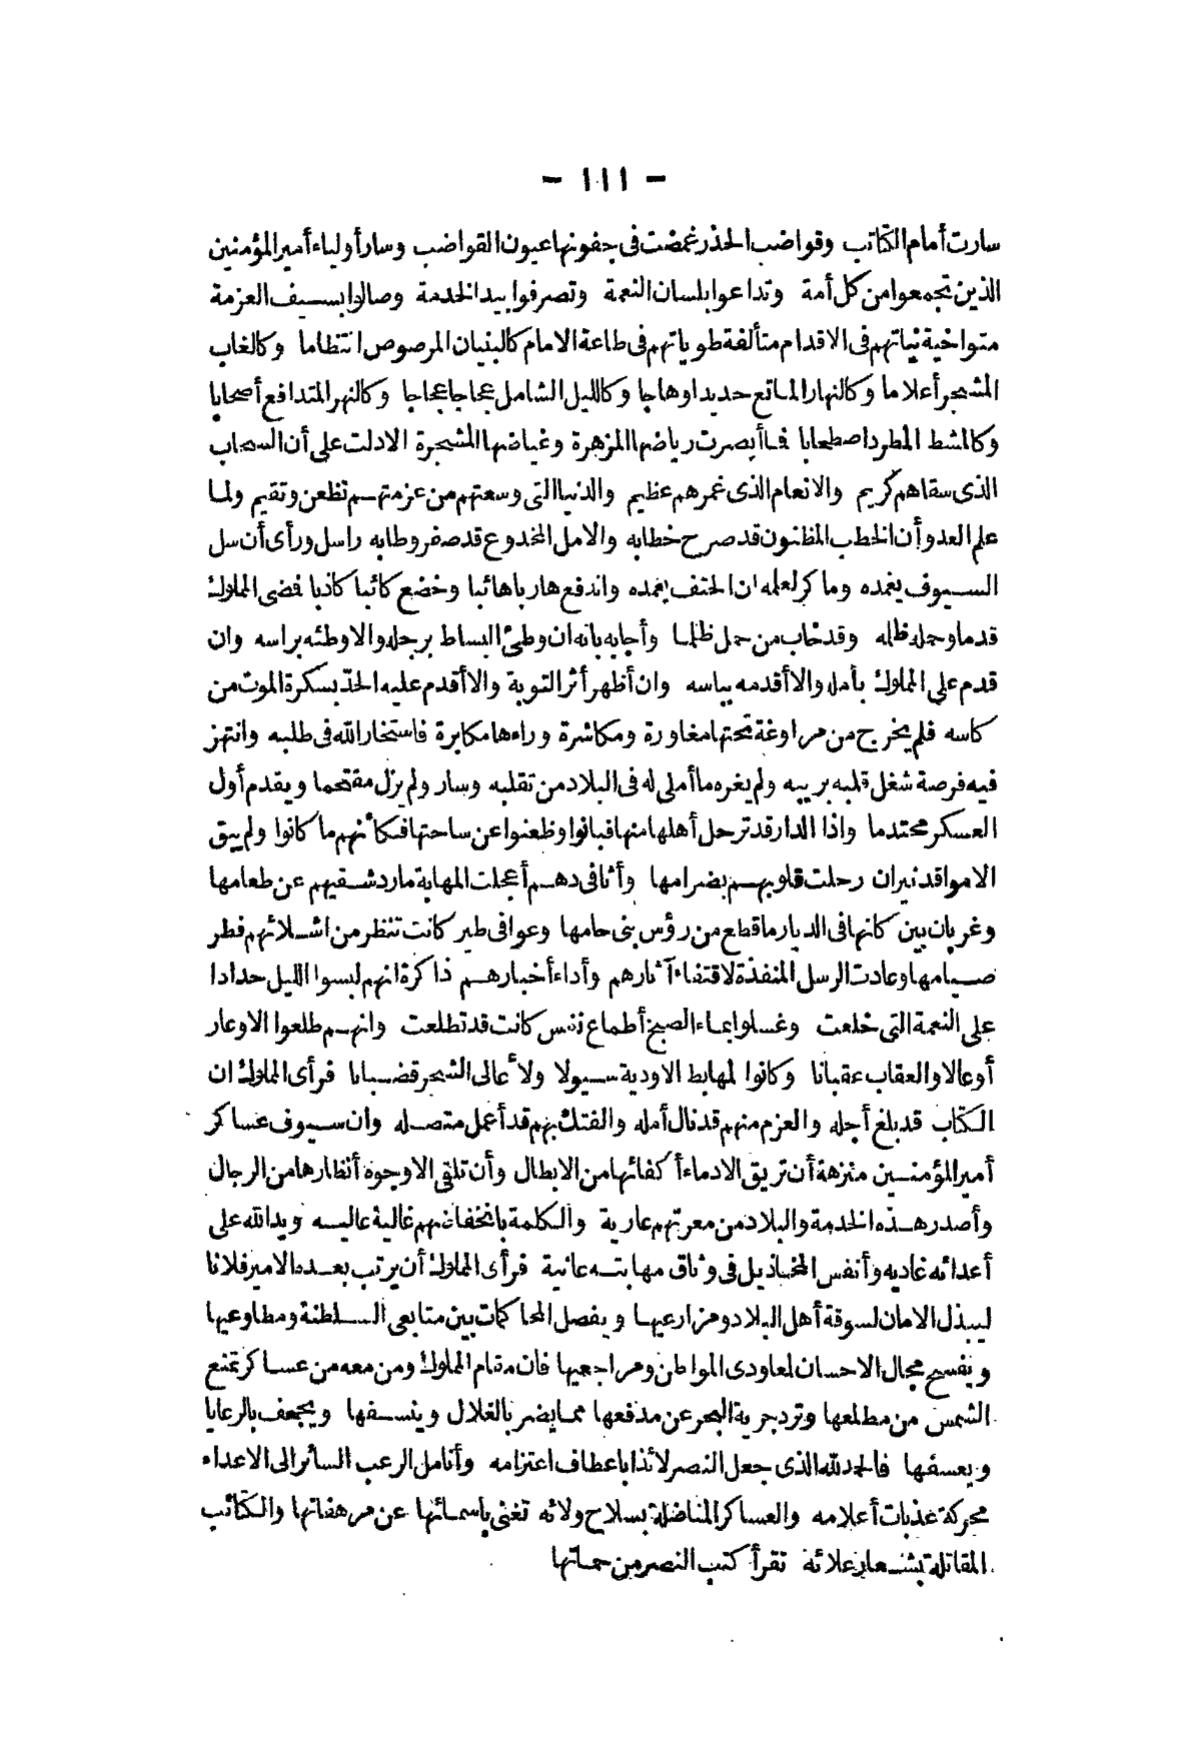 – ١١١ –
سارت أمام الكتائب وقواضب الحذر غمضت فى جفونها عيون القواضب وسار أولياء أمير المؤمنين
الذين تجمعوا من كل أمة وتداعوا بلسان النعمة وتصرفوا بيد الخدمة وصالوا بسيف العزمة
متواخية نياتهم فى الاقدام متألفة طوياتهم فى طاعة الامام كالبنيان المرصوص انتظاما وكالغاب
المشجر أعلاما وكالنهار الماتع حديدا وهاجا وكالليل الشامل عجاجا عجاجا وكالنهر المتدافع أصحابا
وكالمشط المطرد اصطحابا فما أبصرت رياضها المزهرة وغياضها المشجرة الا دلت على أن السحاب
الذى سقاهم كريم والانعام الذى غمرهم عظيم والدنيا التى وسعتهم من عزمتهم تظعن وتقيم ولما
علم العدو أن الخطب المظنون قد صرح خطابه والامل المخدوع قد صفر وطابه راسل ورأى أن سل
السيوف يغمده وماكر لعلمه ان الحتف يغمده واندفع هاربا هائبا وخضع كائبا كاذبا فضى المملوك
قدما وحمله ظله وقد خاب من حمل ظلما وأجابه بانه ان وطئ البساط برجله والا وطئه براسه وان
قدم على المملوك بأمله والا أقدمه بياسه وان أظهر أثر التوبة والا أقدم عليه الحد بسكرة الموت من
كاسه فلم يخرج من مراوغة تحتها مغاورة ومكاشرة وراءها مكابرة فاستخار الله فى طلبه وانتهز
فيه فرصة شغل قلبه بريبه ولم يغره ما أملى له فى البلاد من تقلبه وسار ولم يزل مقتحما ويقدم أول
العسكر محتدما واذا الدار قد ترحل أهلها منها فبانوا وظعنوا عن ساحتها فكأنهم ما كانوا ولم يبق
الا مواقد نيران رحلت قلوبهم بضرامها وأثافى دهم أعجلت المهابة ما رد شقيهم عن طعامها
وغربان بين كانها فى الديار ما قطع من رؤس بنى حامها وعوافى طير كانت تنتظر من اشلائهم فطر
صيامها وعادت الرسل المنفذة لاقتفاء آثارهم وأداء أخبارهم ذاكرة انهم لبسوا الليل حدادا
على النعمة التى خلعت وغسلوا بماء الصبح أطماع نفس كانت قد تطلعت وانهم طلعوا الاوعار
أوعالا والعقاب عقبانا وكانوا لمهابط الاودية سيولا ولأعالى الشجر قضبانا فرأى المملوك ان
الكتاب قد بلغ أجله والعزم منهم قد نال أمله والفتك بهم قد أعمل متصله وان سيوف عساكر
أمير المؤمنين منزهة أن تريق الا دماء أكفائها من الابطال وأن تلقى الا وجوه أنظارها من الرجال
وأصدر هذه الخدمة والبلاد من معرتهم عارية والكلمة بانخفاضهم غالية عاليه ويد الله على
أعدائه غاديه وأنفس المخاذيل فى وثاق مهابته عانية فرأى المملوك أن يرتب بعده الامير فلانا
ليبذل الامان لسوقة أهل البلاد ومزارعيها ويفصل المحاكمات بين متابعى السلطنة ومطاوعيها
ويفسح مجال الاحسان لمعاودى المواطن ومراجعيها فان مقام المملوك ومن معه من عساكر تمنع
الشمس من مطلعها وترد جرية البحر عن مدفعها مما يضر بالغلال وينسفها ويجحف بالرعايا
ويعسفها فالحمد لله الذى جعل النصر لائذا باعطاف اعتزامه وأنامل الرعب السائر الى الاعداء
محركة عذبات أعلامه والعساكر المناضلة بسلاح ولائه تغنى باسمائها عن مرهفاتها والكتائب
المقاتلة بشعار علائه تقرأ كتب النصر من حماتها